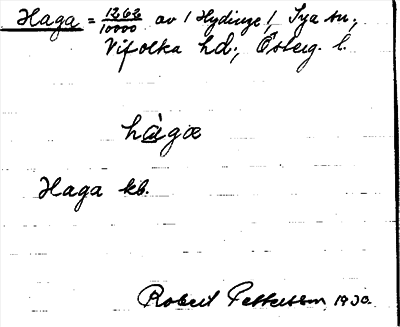 Haga = 1262/10000 av 1 Hydinge, Sya sn,
Vifolka hd; Österg. l.
hàgœ
Haga kb.
Robert Pettersson 1930.